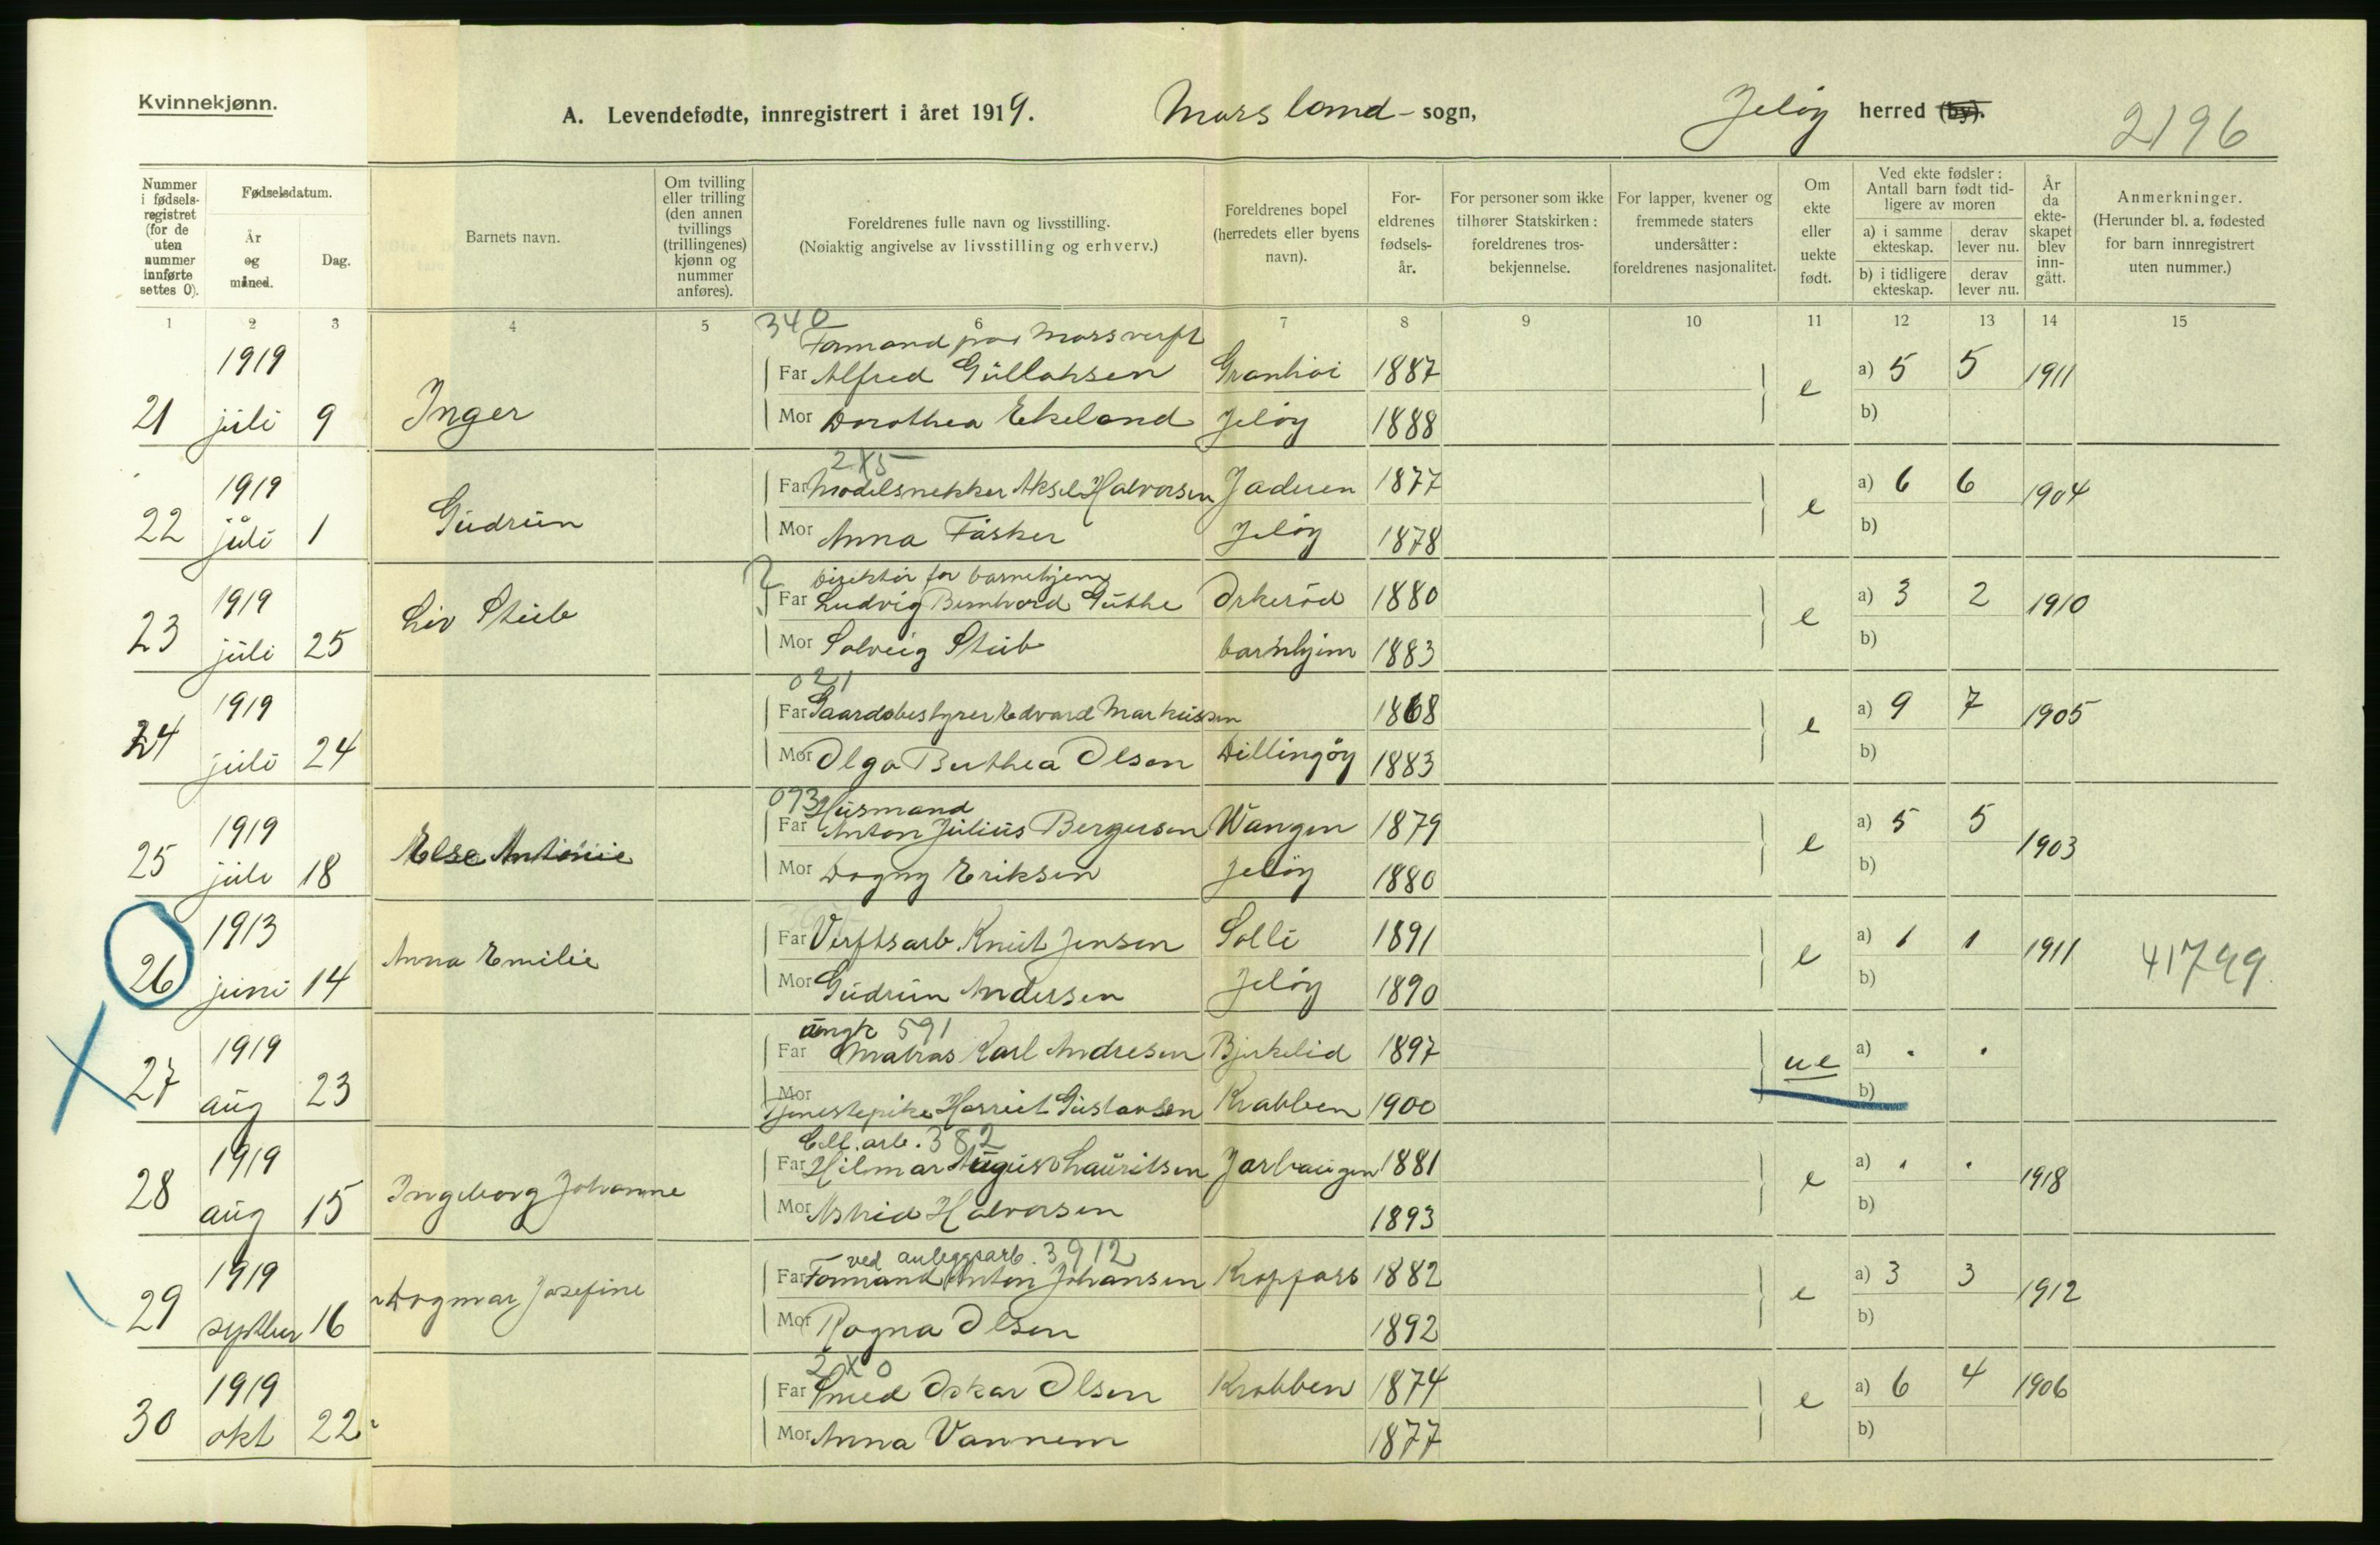 Kvinnekjønn.
A. Levendefødte, innregistrert i året 1919. Moss land - sogn, Jeløy herred (by). 2196
Nummer i fødselsregistret (for de uten nummer innførte settes 0).
Fødselsdatum.
År og måned.
Dag.
Barnets navn.
Om tvilling eller trilling (den annen tvillings (trillingenes) kjønn og nummer anføres).
Foreldrenes fulle navn og livsstilling.
(Nøiaktig angivelse av livsstilling og erhverv.)
Foreldrenes bopel (herredets eller byens navn).
Foreldrenes fødselsår.
For personer som ikke tilhører Statskirken: foreldrenes trosbekjennelse.
For lapper, kvener og fremmede staters undersåtter: foreldrenes nasjonalitet.
Om ekte eller uekte født.
Ved ekte fødsler: Antall barn født tidligere av moren
a) i samme ekteskap. derav lever nu.
b) i tidligere ekteskap. derav lever nu.
År da ekteskapet blev inngått.
Anmerkninger.
(Herunder bl. a. fødested for barn innregistrert uten nummer.)
1 2 3 4 5 6 7 8 9 10 11 12 13 14 15
340
Formand på Moss verft
1919 Far Alfred Gullaksen Granhøi 1887 e a) 5 5 1911
21 juli 9 Inger Mor Dorothea Ekeland Jeløy 1888 b)
2X5
1919 Far Modelsnekker Aksel Halvorsen Jaderen 1877 e a) 6 6 1904
22 juli 1 Gudrun Mor Anna Fasker Jeløy 1878 b)
Direktør for barnehjem
1919 Liv Stub Far Ludvig Bernhard Guthe Orkerød 1880 e a) 3 2 1910
23 juli 25 Mor Solveig Stub barnehjem 1883 b)
021
1919 Far Gaardsbestyrer Edvard Markussen 1868 e a) 9 7 1905
24 juli 24 Mor Olga Berthea Olsen Dillingøy 1883 b)
073 Husmand
1919 Far Anton Julius Bergersen Wangen 1879 e a) 5 5 1903
25 juli 18 Else Antonie Mor Dagny Eriksen Jeløy 1880 b)
1913 Far Verftsarb. Knut Jensen Solli 1891 e a) 1 1 1911 41799
26 juni 14 Anna Emilie Mor Gudrun Andersen Jeløy 1890 b)
ungk 591
1919 Far Matros Karl Andresen Bjerkelid 1897 ue a) . .
27 aug 23 Mor Tjenestepike Harriet Gustavsen Krabben 1900 b)
Ell. arb. 382
1919 Far Hilmar August Lauritsen Jarhaugen 1881 e a) . . 1918
28 aug 15 Ingeborg Johanne Mor Astrid Halvorsen 1893 b)
ved anleggsarb. 3912
1919 Far Formand Anton Johansen Kroppass 1882 e a) 3 3 1912
29 septber 16 Dagmar Josefine Mor Ragna Olsen 1892 b)
2X0
1919 Far Smed Oskar Olsen Krabben 1874 e a) 6 4 1906
30 okt 22 Mor Anna Vannem 1877 b)